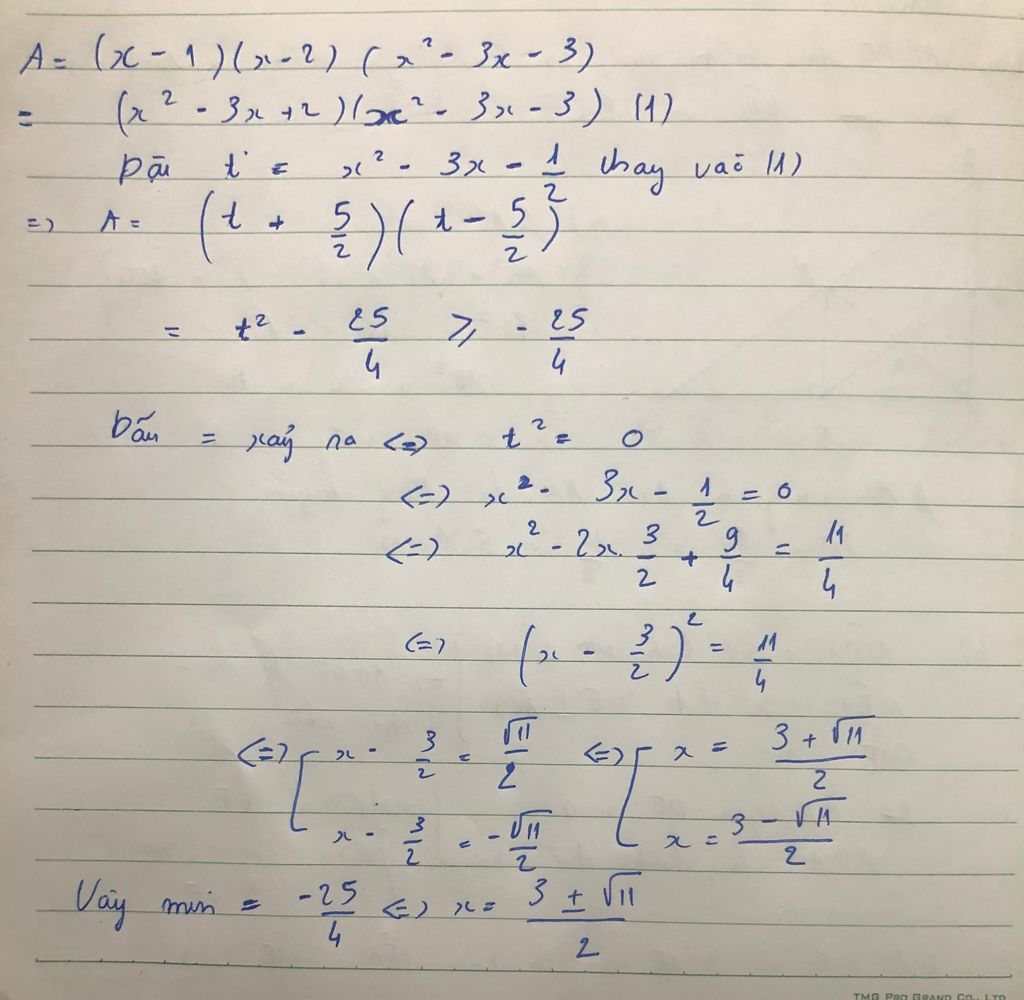 A = (x - 1)(x - 2)(x² - 3x - 3)
= (x² - 3x + 2)(x² - 3x - 3) (1)
Đặt t = x² - 3x - 1/2 thay vào (1)
=> A = (t + 5/2)(t - 5/2)
= t² - 25/4 ⩾ - 25/4
Dấu = xảy ra <=> t² = 0
<=> x² - 3x - 1/2 = 0
<=> x² - 2x. 3/2 + 9/4 = 11/4
<=> (x - 3/2)² = 11/4
<=> [ x - 3/2 = √11/2 <=> [ x = (3 + √11)/2
x - 3/2 = -√11/2 x = (3 - √11)/2
Vậy min = -25/4 <=> x = (3 ± √11)/2
TMG PRO GRAND CO., LTD